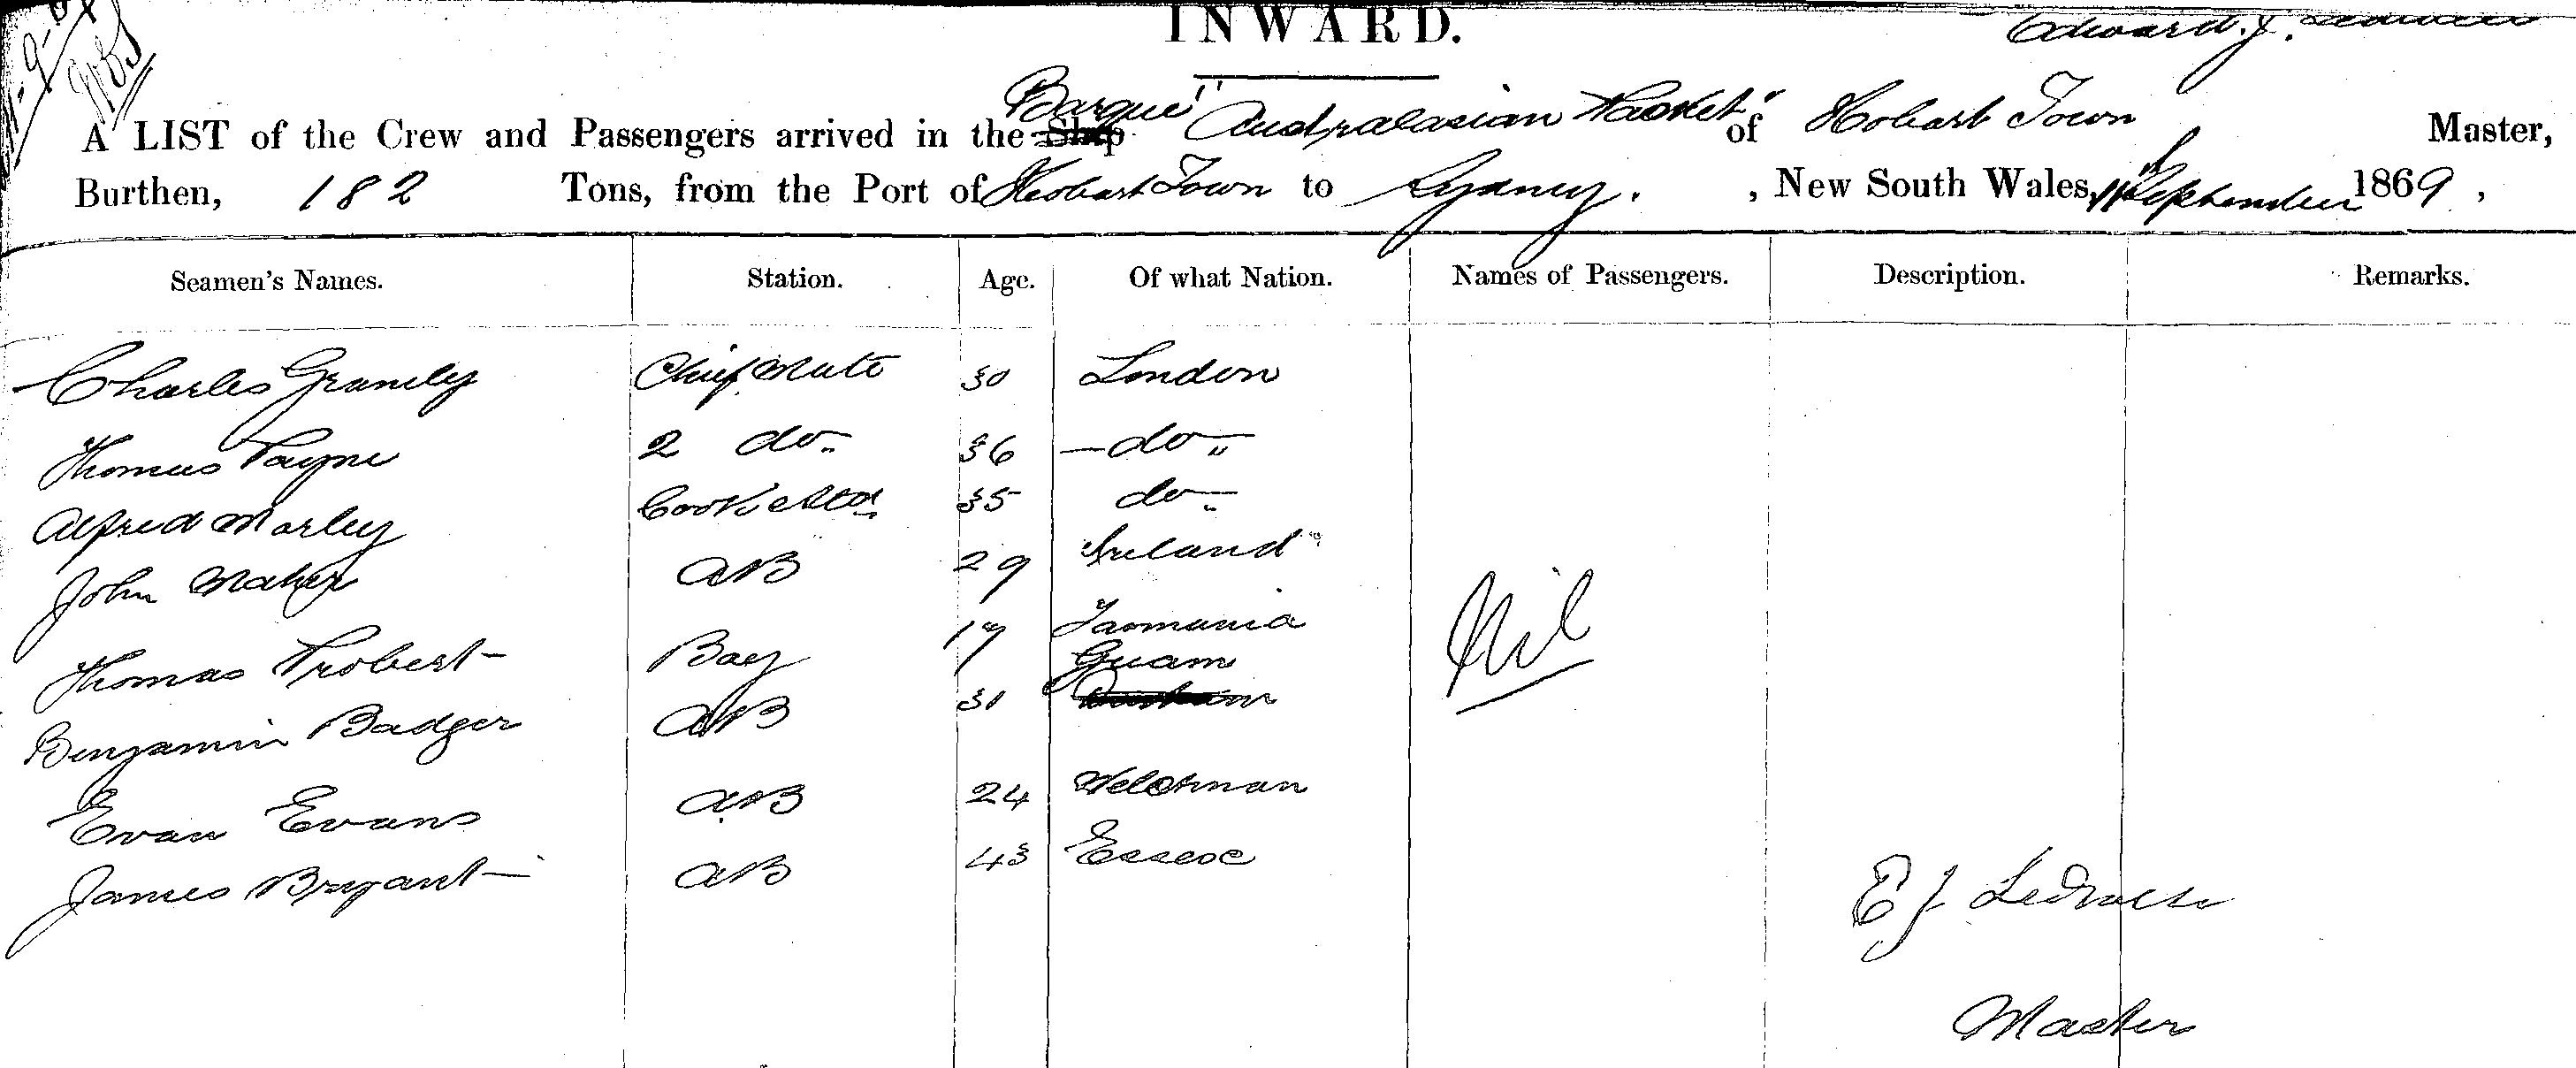 INWARD.
Edward. J.
A LIST of the Crew and Passengers arrived in the Barque "Australasian Packet" of Hobart Town Master,
Burthen, 182 Tons, from the Port of Hobart Town to Sydney. , New South Wales, 11th September 1869 ,
Seamen's Names. Station. Age. Of what Nation. Names of Passengers. Description. Remarks.
Charles Chief Mate 30 London
Thomas Payne 2 do. 36 — do — „
Alfred Morley Cook & Std. 35 do — „
John Maher AB 29 Ireland
Thomas Probert Boy 17 Tasmania
Benjamin Badger AB 31 Guam
Evan Evans AB 24 Welchman
James Bryant AB 43 Essex
Nil
E J
Master